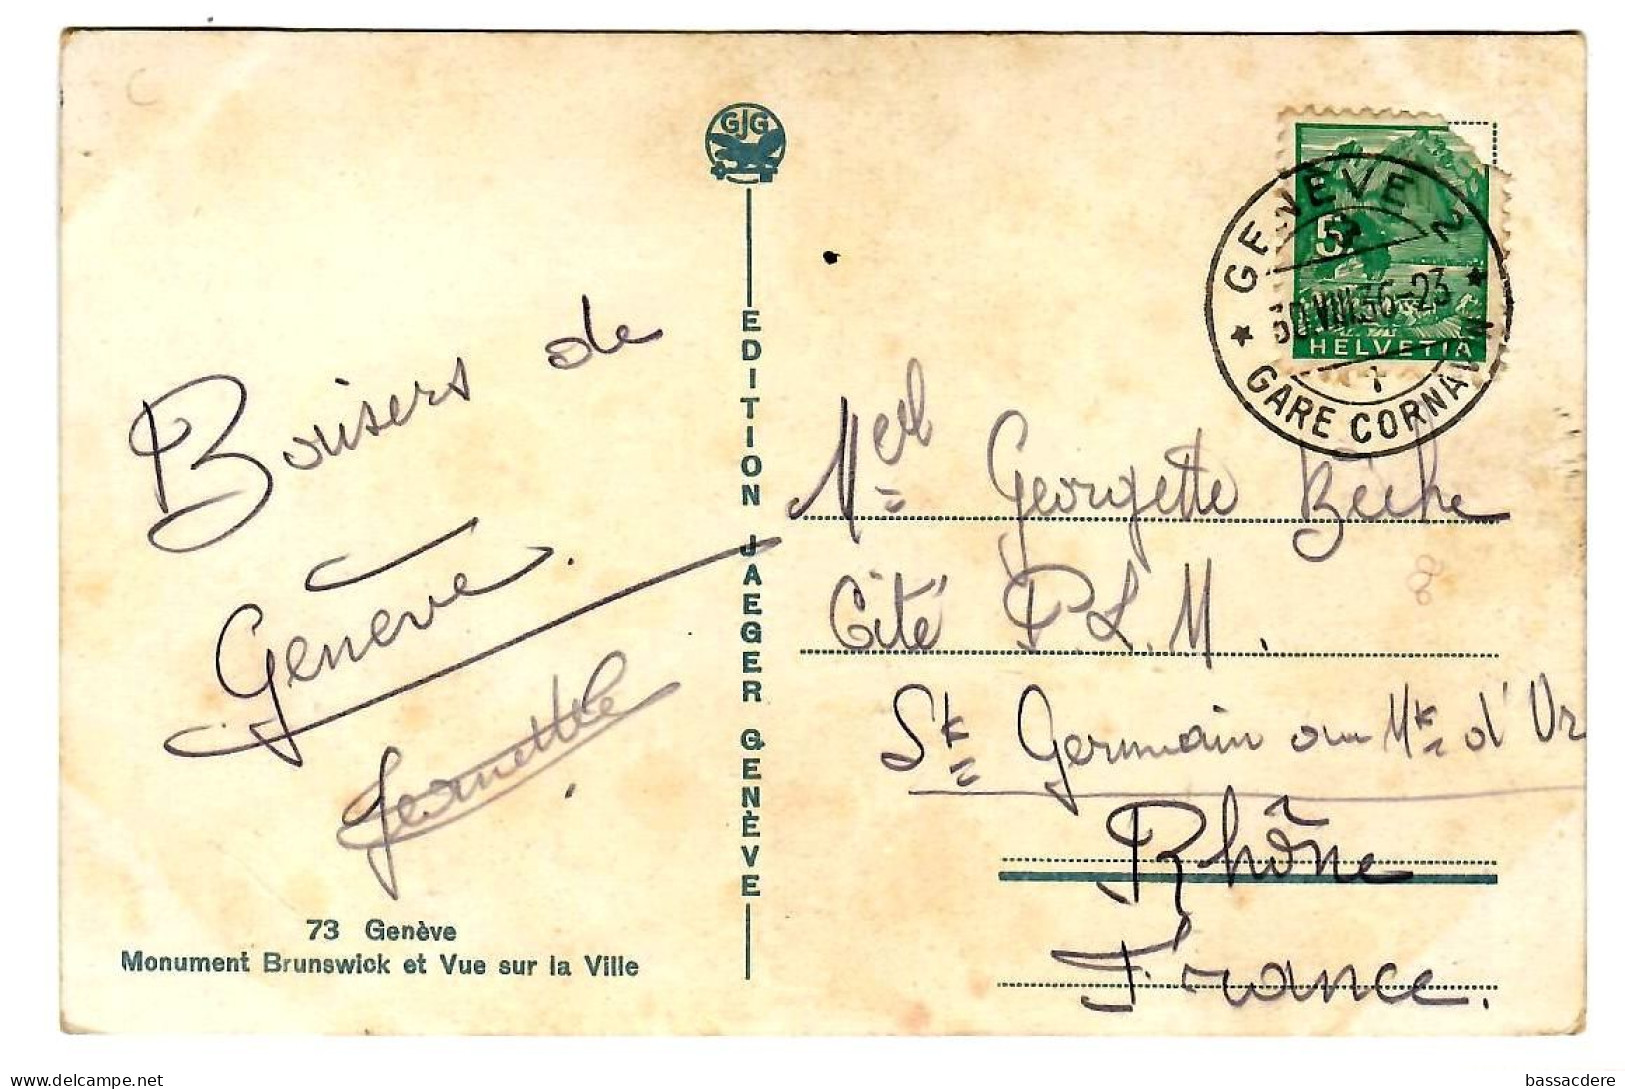 GJG
Baisers de
Genève.
EDITION JAEGER GENÈVE
73 Genève
Monument Brunswick et Vue sur la Ville
5
HELVETIA
GENÈVE 2
30.VIII.36-23
GARE CORNAVIN
Melle Georgette Bèche
Cité P.L.M.
St Germain au Mt d'Or
Rhône
France.
bassacdere